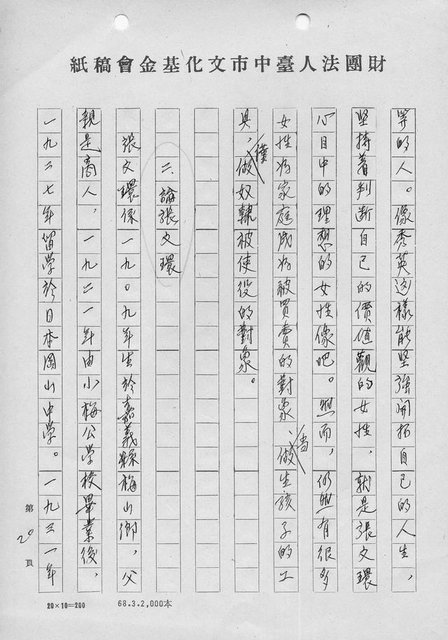 財團法人臺中市文化基金會稿紙
等的人。像秀英這樣能堅強開拓自己的人生,
堅持著判斷自己的價值觀的女性,就是張文環
心目中的理想的女性像吧。然而,仍然有很多
女性為家庭成為被買賣的對象、當做生孩子的工
具,僅做奴隸被使役的對象。
二、論張文環
張文環係一九〇九年生於嘉義縣梅山鄉,父
親是商人,一九二一年由小梅公學校畢業後,
一九二七年留學於日本岡山中學。一九三一年
第20頁
20×10=200
68.3.2,000本